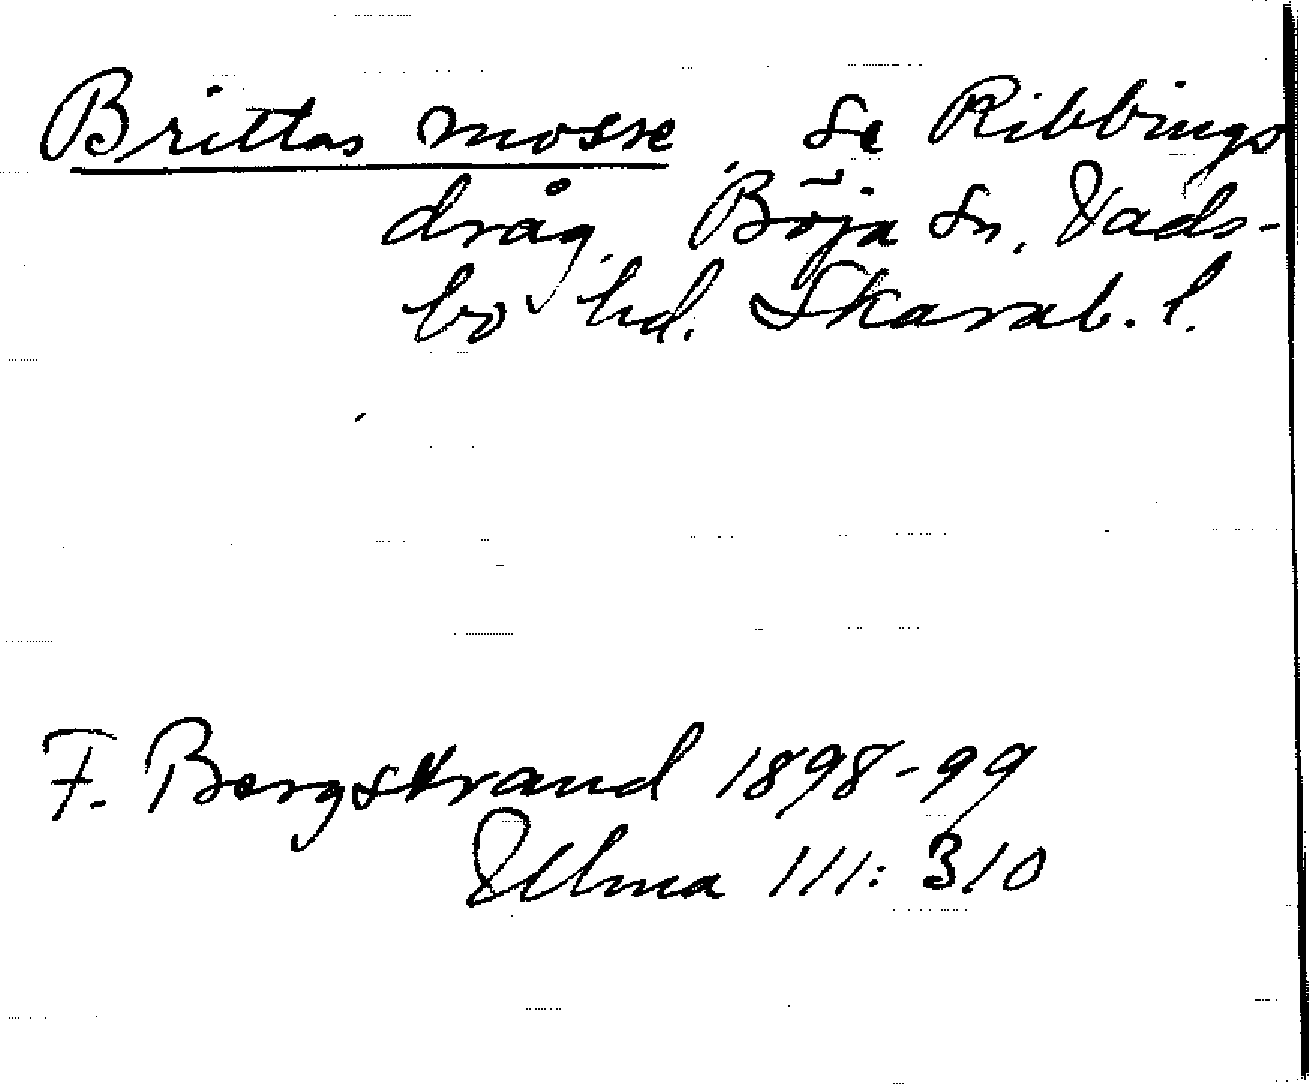 Brittas mosse se Ribbings
dråg, Böja sn, Vads-
bo hd. Skarab. l.
F. Bergstrand 1898-99
Ulma 111: 310